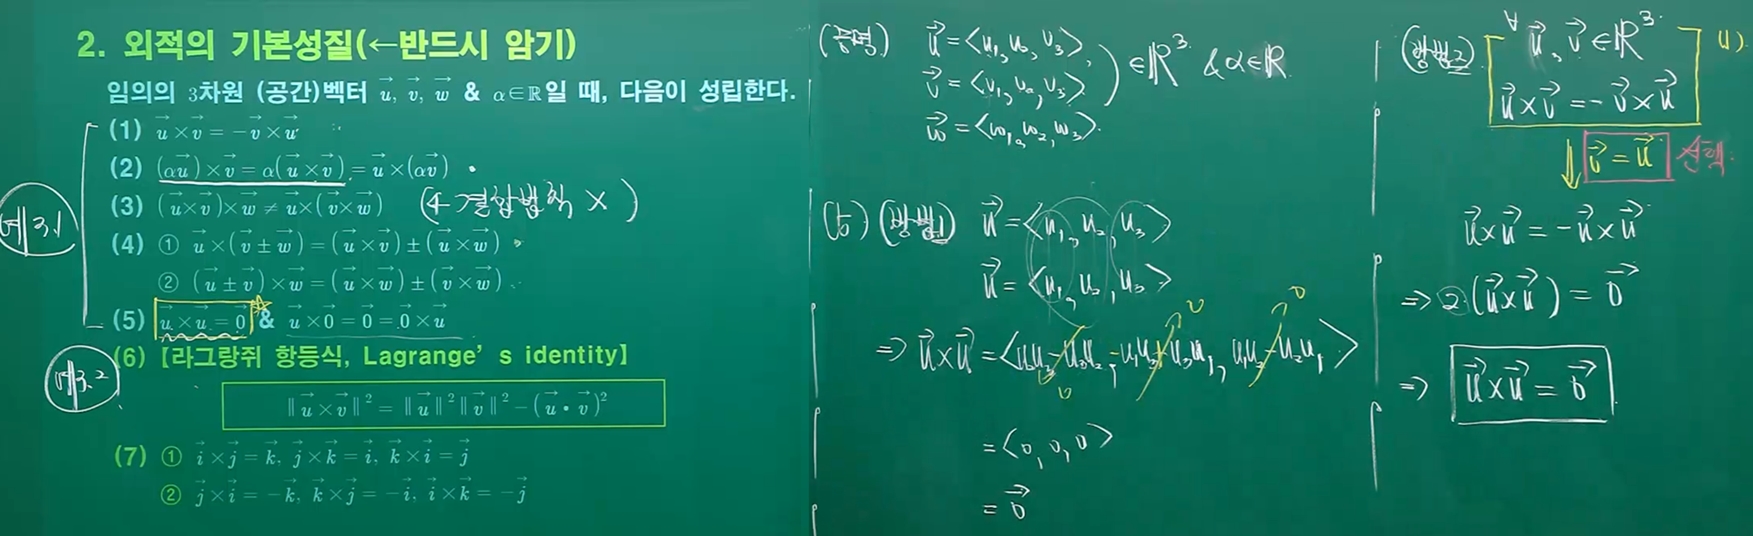 2. 외적의 기본성질(←반드시 암기)
임의의 3차원 (공간)벡터 u⃗, v⃗, w⃗ & α∈ℝ일 때, 다음이 성립한다.
(1) u⃗×v⃗=-v⃗×u⃗
(2) (αu⃗)×v⃗=α(u⃗×v⃗)=u⃗×(αv⃗)
예3.1
(3) (u⃗×v⃗)×w⃗≠u⃗×(v⃗×w⃗) (결합법칙 ×)
(4) ① u⃗×(v⃗±w⃗)=(u⃗×v⃗)±(u⃗×w⃗)
② (u⃗±v⃗)×w⃗=(u⃗×w⃗)±(v⃗×w⃗)
(5) u⃗×u⃗=0⃗ & u⃗×0⃗=0⃗=0⃗×u⃗
(6)【라그랑쥐 항등식, Lagrange's identity】
예3.2
‖u⃗×v⃗‖²=‖u⃗‖²‖v⃗‖²-(u⃗•v⃗)²
(7) ① i⃗×j⃗=k⃗, j⃗×k⃗=i⃗, k⃗×i⃗=j⃗
② j⃗×i⃗=-k⃗, k⃗×j⃗=-i⃗, i⃗×k⃗=-j⃗
(증명) u⃗=<u₁, u₂, u₃>,
v⃗=<v₁, v₂, v₃> ∈ℝ³ & α∈ℝ
w⃗=<w₁, w₂, w₃>
(5) (방법1) u⃗=<u₁, u₂, u₃>
u⃗=<u₁, u₂, u₃>
⇒ u⃗×u⃗=<u₂u₃-u₃u₂, -u₁u₃+u₃u₁, u₁u₂-u₂u₁>
0 0 0
=<0, 0, 0>
=0⃗
(방법2) ∀u⃗, v⃗∈ℝ³ (1)
u⃗×v⃗=-v⃗×u⃗
⇓ v⃗=u⃗ 선택
u⃗×u⃗=-u⃗×u⃗
⇒ 2(u⃗×u⃗)=0⃗
⇒ u⃗×u⃗=0⃗